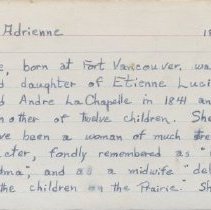 Adrienne 18
, born at Fort Vancouver, wa
d daughter of Etienne Luci
d Andre La Chapelle in 1841 an
mother of twelve children. She
ve been a woman of much
ater, fondly remembered as "
dma", and as a midwife "del
the children on the Prairie. Sh